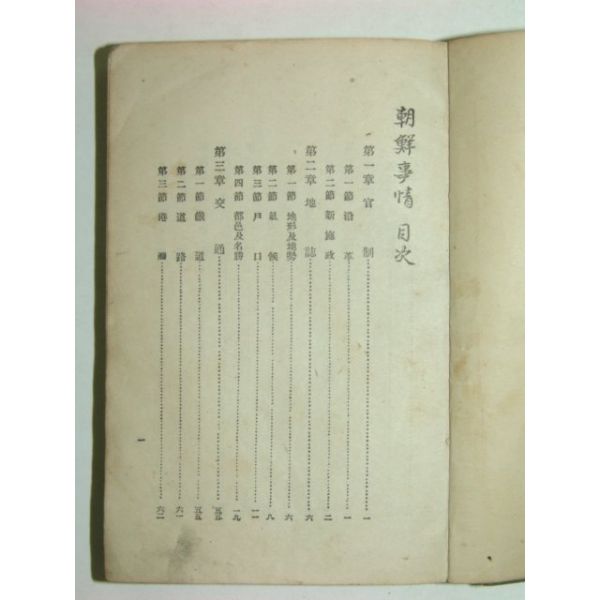 朝鮮事情目次
第一章 官制……一
第一節 沿革……一
第二節 新施政……二
第二章 地誌……六
第一節 地形及地勢……六
第二節 氣候……八
第三節 戶口……一一
第四節 都邑及名勝……一九
第三章 交通……五五
第一節 鐵道……五五
第二節 道路……六一
第三節 港灣……六二
一